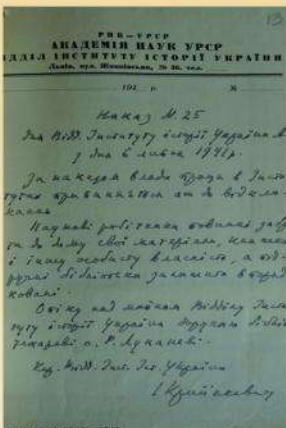 13
РНК - УРСР
АКАДЕМІЯ НАУК УРСР
ВІДДІЛ ІНСТИТУТУ ІСТОРІЇ УКРАЇНИ
Львів, вул. № 36. тел.
194 р. №
Наказ № 25
для Відд. Інституту історії України
з дня 6 липня 1941 р.
За наказом влади праця в Інсти
туті припиняється аж до
Наукові робітники повинні забра
ти до дому свої матеріали, книжки
і іншу особисту власність, а під
ручні бібліотеки залишити
Опіку над майном Відділу Інсти
туту історії України бібліо
текареві о. Р. Лукашеві.
Кер. Відд. Інст. Іст. України
І Крипякевич